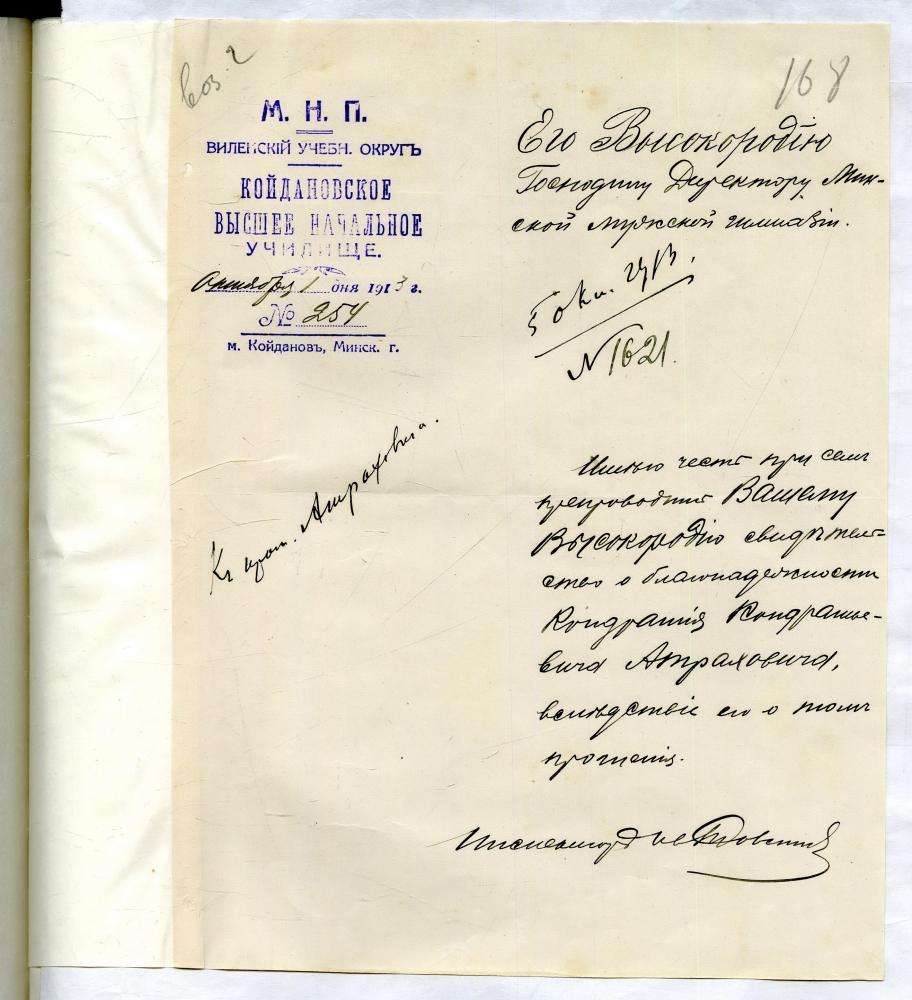 168
М. Н. П.
ВИЛЕНСКІЙ УЧЕБН. ОКРУГЪ
КОЙДАНОВСКОЕ
ВЫСШЕЕ НАЧАЛЬНОЕ
УЧИЛИЩЕ.
Октября 1 дня 1913 г.
№ 254
м. Койдановъ, Минск. г.
Его Высокородію
Господину Директору Мин-
ской мужской гимназіи.
5 окт.
N 1621.
Къ прош. Атраховича.
Имѣю честь при семъ
препроводить Вашему
Высокородію свидѣтель-
ство о благонадежности
Кондратія Кондратье-
вича Атраховича,
вслѣдствіе его о томъ
прошенія.
Инспекторъ